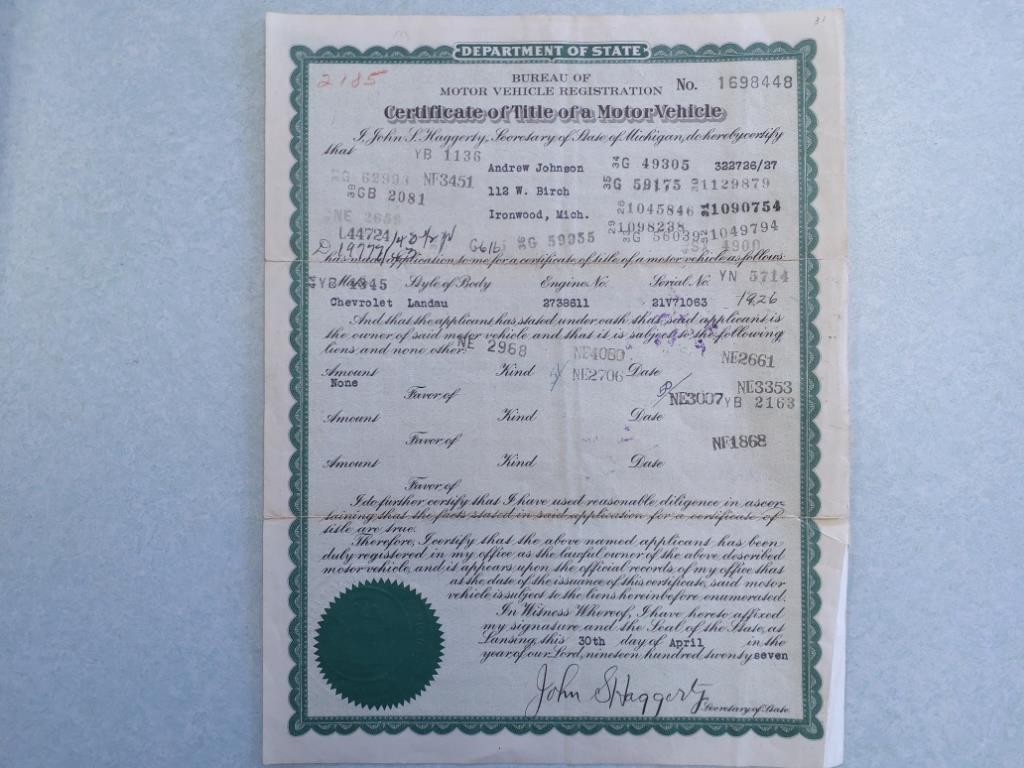 31
DEPARTMENT OF STATE
2185
BUREAU OF
MOTOR VEHICLE REGISTRATION No. 1698448
Certificate of Title of a Motor Vehicle
I, John S. Haggerty, Secretary of State of Michigan, do hereby certify
that YB 1136
Andrew Johnson 34G 49305 322726/27
NF3451
112 W. Birch 35G 59175 1129879
GB 2081
Ironwood, Mich. 1045846 1090754
NE 2659
1098238 1049794
L44724
G616 36G 59955 4900
has made application to me for a certificate of title of a motor vehicle as follows:
YB 4345 Make Style of Body Engine No. Serial No. YN 5714
Chevrolet Landau 2738611 21V71063 1926
And that the applicant has stated under oath that said applicant is
the owner of said motor vehicle and that it is subject to the following
liens and none other: NE 2968 NE4080
NE2661
Amount Kind NE2706 Date
None
NE3353
Favor of NE3007 YB 2163
Amount Kind Date
Favor of NF1868
Amount Kind Date
Favor of
I do further certify that I have used reasonable diligence in ascer-
taining that the facts stated in said application for a certificate of
title are true.
Therefore, I certify that the above named applicant has been
duly registered in my office as the lawful owner of the above described
motor vehicle, and it appears upon the official records of my office that
at the date of the issuance of this certificate, said motor
vehicle is subject to the liens hereinbefore enumerated.
In Witness Whereof, I have hereto affixed
my signature and the Seal of the State, at
Lansing, this 30th day of April in the
year of our Lord, nineteen hundred twenty seven
John S Haggerty
Secretary of State.